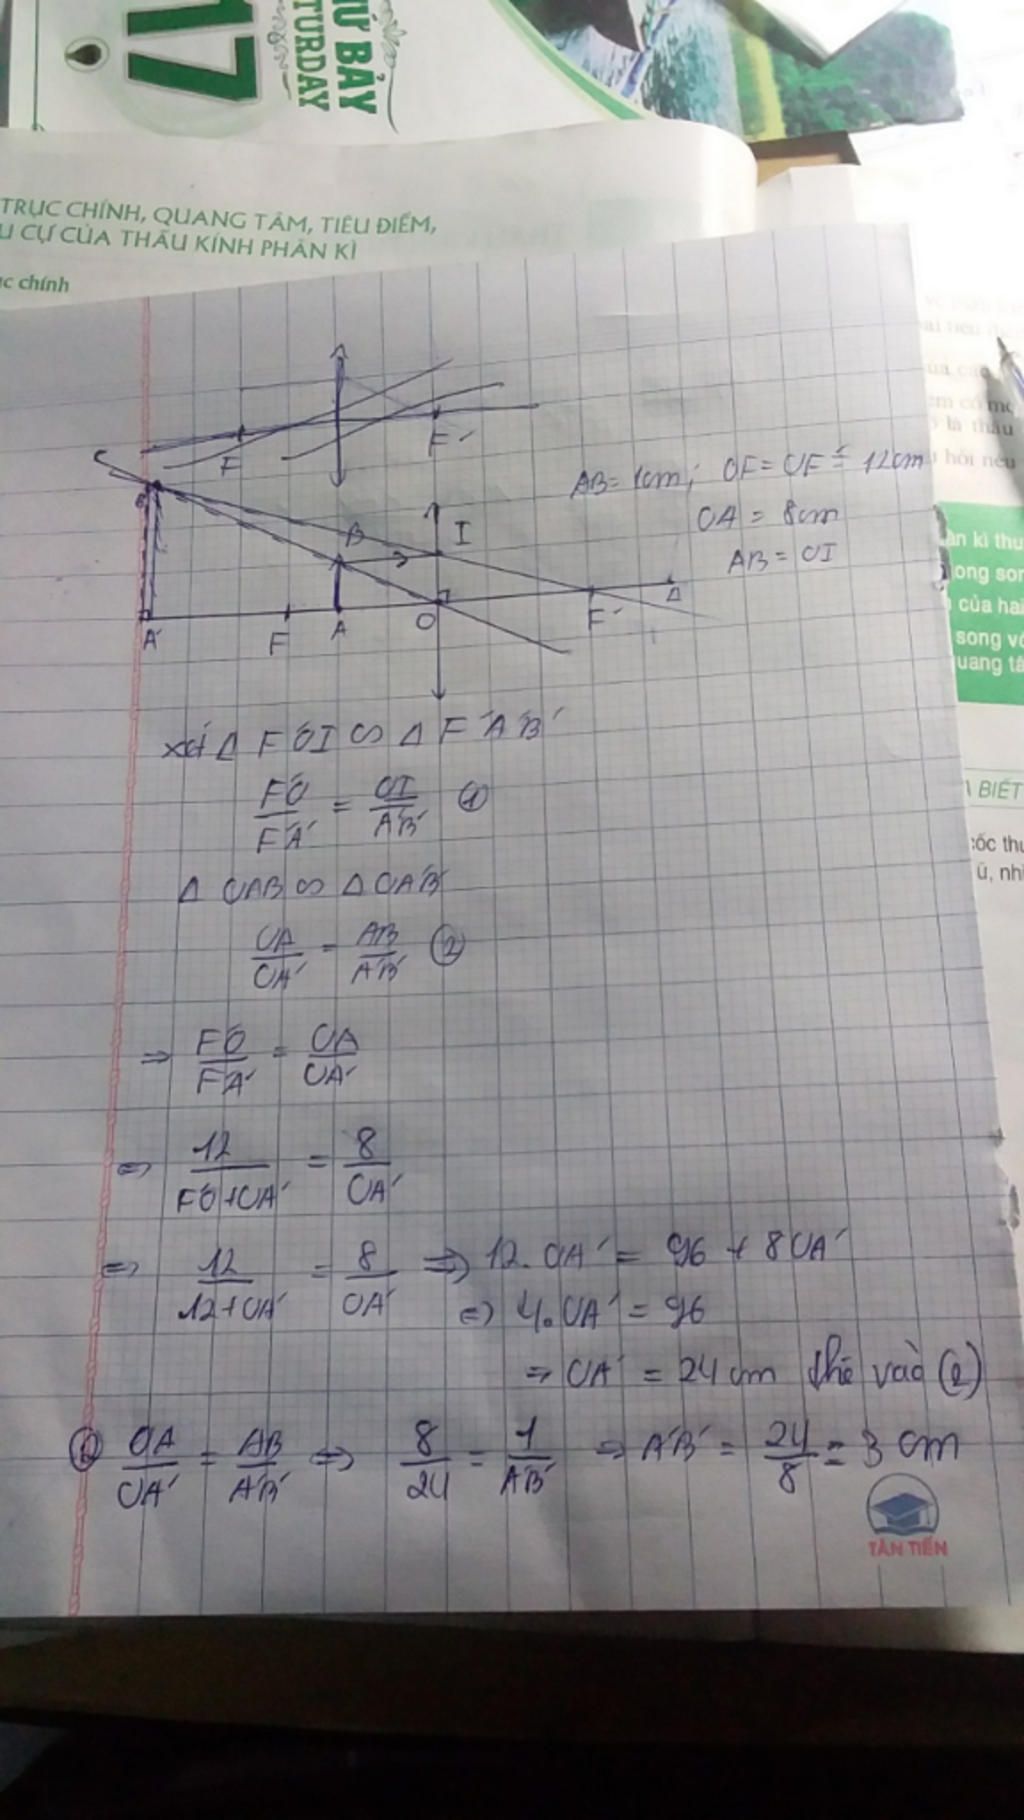 17
Ứ BẢY
TURDAY
TRỤC CHÍNH, QUANG TÂM, TIÊU ĐIỂM,
U CỰ CỦA THẤU KÍNH PHÂN KÌ
ục chính
F F'
AB = 1cm; OF = OF' = 12cm
OA = 8cm
AB = OI
B' B I
A' F A O F' Δ
Xét Δ F'OI ∽ Δ F'A'B'
F'O / F'A' = OI / A'B' ①
Δ OAB ∽ Δ OA'B'
OA / OA' = AB / A'B' ②
⇒ F'O / F'A' = OA / OA'
⇔ 12 / F'O + OA' = 8 / OA'
⇔ 12 / 12 + OA' = 8 / OA' ⇔ 12. OA' = 96 + 8 OA'
⇔ 4. OA' = 96
⇒ OA' = 24 cm thế vào (2)
② OA / OA' = AB / A'B' ⇔ 8 / 24 = 1 / A'B' ⇒ A'B' = 24 / 8 = 3 cm
TÂN TIẾN
ân kì thu
song son
của hai
song vớ
uang tâ
BIẾT
cốc thu
ũ, nhì